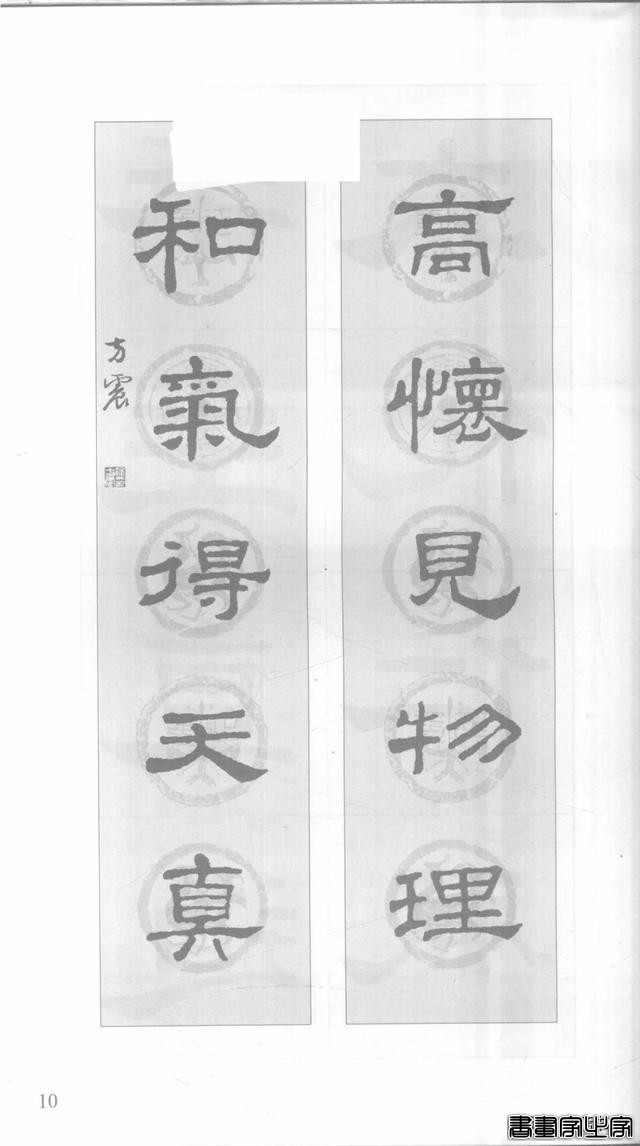 高懷見物理
和氣得天真
方震
10
書畫家必字